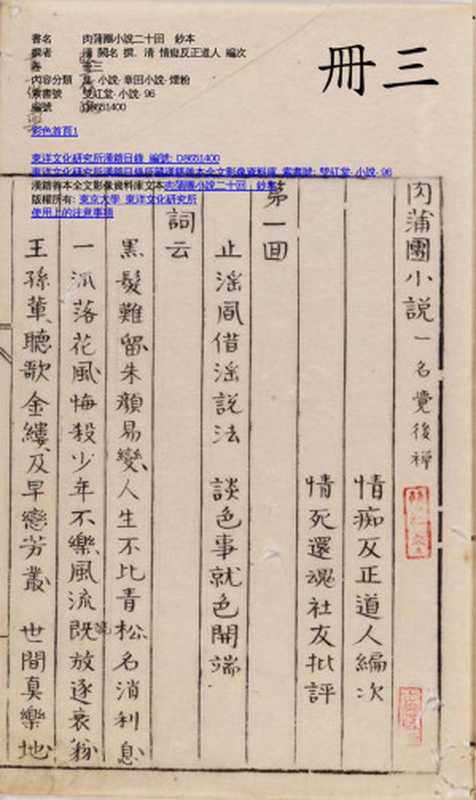 書名 肉蒲團小說二十回 鈔本
撰者 清 闕名 撰。清 情癡反正道人 編次
卷 三
内容分類 集·小說·章回小說·煙粉
索書號 雙紅堂·小說·96
編號 D8651400
彩色首頁1
東洋文化研究所漢籍目錄 編號: D8651400
東洋文化研究所漢籍目錄所藏漢籍善本全文影像資料庫 索書號: 雙紅堂·小說·96
漢籍善本全文影像資料庫文本肉蒲團小說二十回,鈔本
版權所有: 東京大學 東洋文化研究所
使用上の注意事項
三冊
肉蒲團小説 一名覺後禅
情痴反正道人編次
情死還魂社友批評
第一回
止滛風借滛説法 談色事就色開端
詞云
黒髪難留朱顔易變人生不比青松名消利息
一派落花風悔殺少年不樂風流既放逐衰翁
王孫輩聽歌金縷及早戀芳叢 世間真樂地